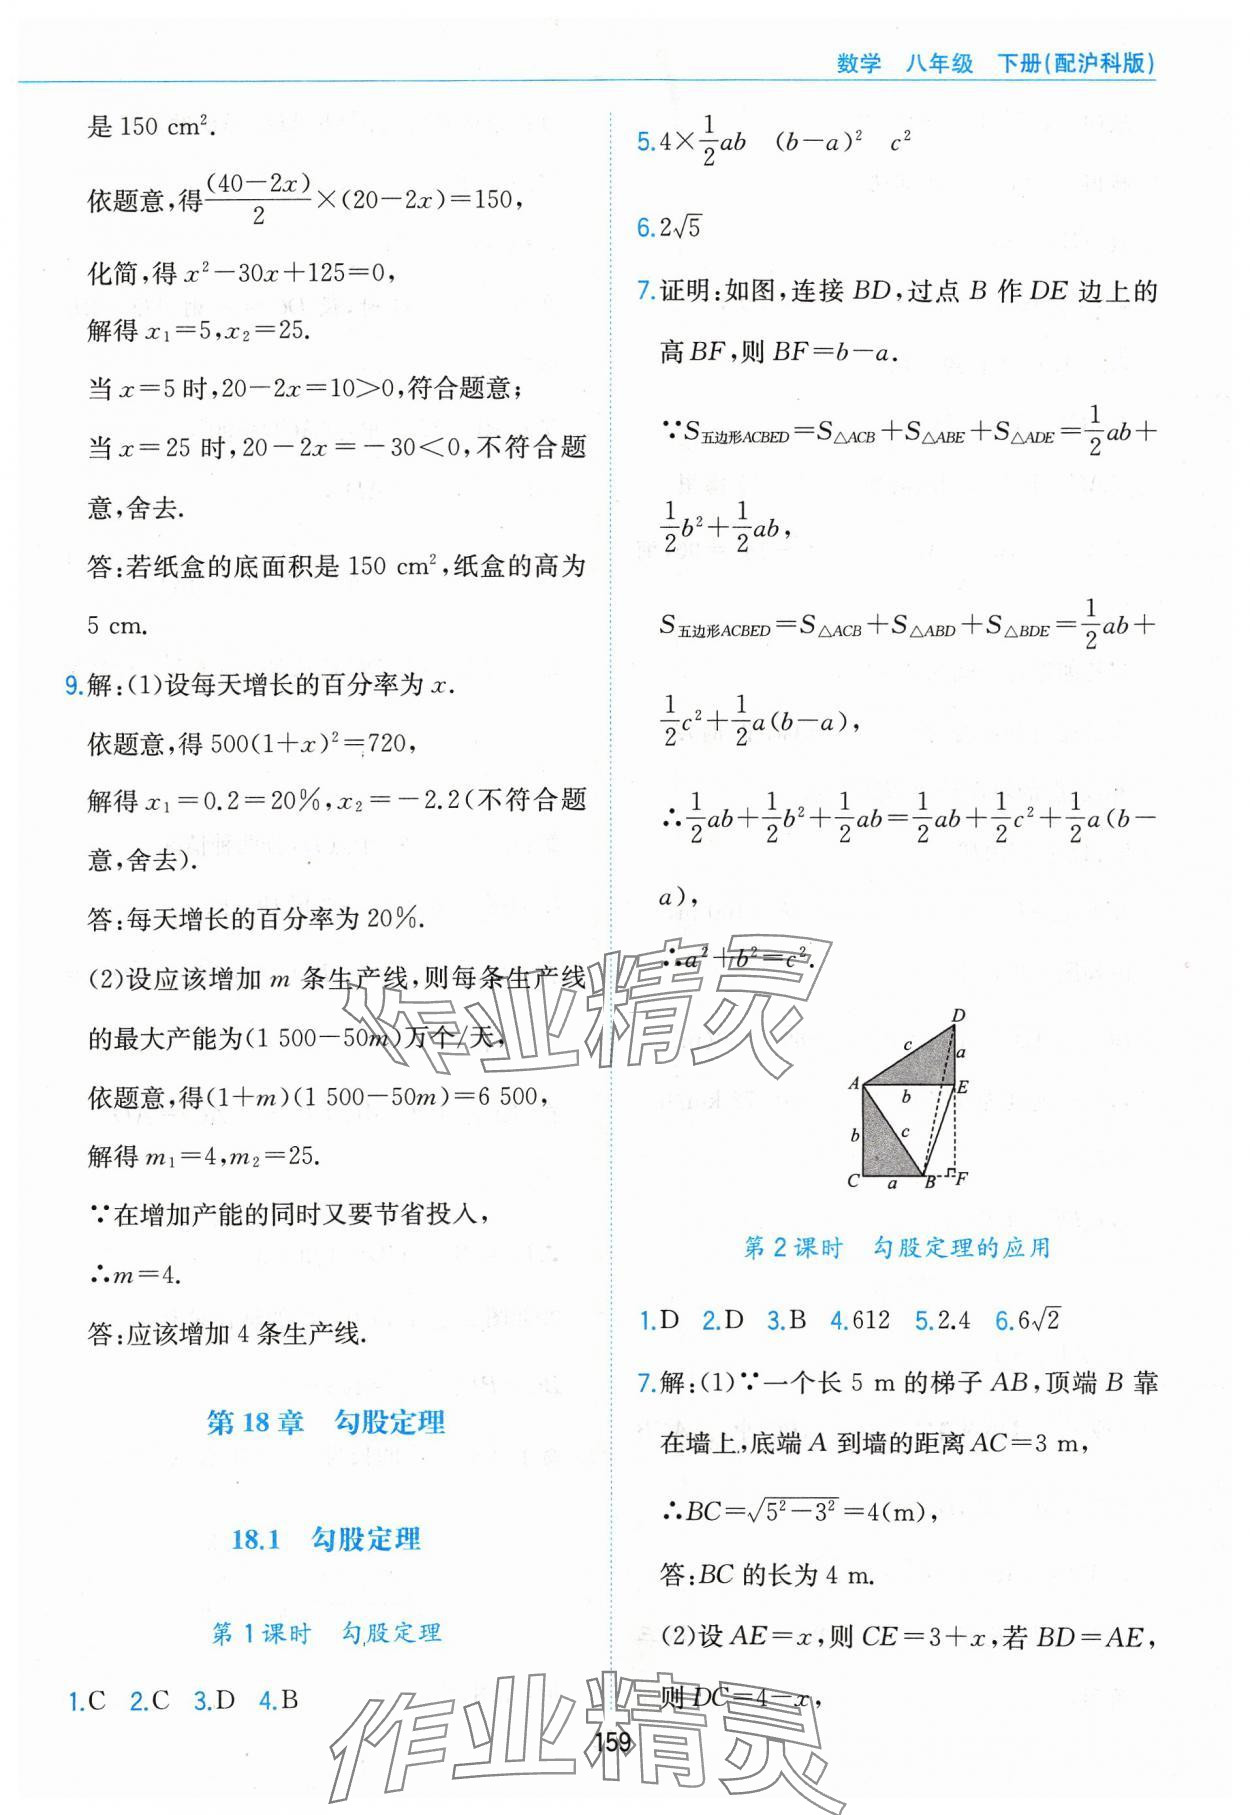 数学 八年级 下册(配沪科版)
是 150 cm².
依题意,得(40-2x)/2×(20-2x)=150,
化简,得 x²-30x+125=0,
解得 x₁=5,x₂=25.
当 x=5 时,20-2x=10>0,符合题意;
当 x=25 时,20-2x=-30<0,不符合题
意,舍去.
答:若纸盒的底面积是 150 cm²,纸盒的高为
5 cm.
9.解:(1)设每天增长的百分率为 x.
依题意,得 500(1+x)²=720,
解得 x₁=0.2=20%,x₂=-2.2(不符合题
意,舍去).
答:每天增长的百分率为 20%.
(2)设应该增加 m 条生产线,则每条生产线
的最大产能为(1 500-50m)万个/天,
依题意,得(1+m)(1 500-50m)=6 500,
解得 m₁=4,m₂=25.
∵在增加产能的同时又要节省投入,
∴m=4.
答:应该增加 4 条生产线.
第 18 章 勾股定理
18.1 勾股定理
第 1 课时 勾股定理
1.C 2.C 3.D 4.B
5.4×1/2ab (b-a)² c²
6.2√5
7.证明:如图,连接 BD,过点 B 作 DE 边上的
高 BF,则 BF=b-a.
∵S五边形ACBED=S△ACB+S△ABE+S△ADE=1/2ab+
1/2b²+1/2ab,
S五边形ACBED=S△ACB+S△ABD+S△BDE=1/2ab+
1/2c²+1/2a(b-a),
∴1/2ab+1/2b²+1/2ab=1/2ab+1/2c²+1/2a(b-
a),
∴a²+b²=c².
D
c
a
A
b
E
b
c
C
a
B
F
第 2 课时 勾股定理的应用
1.D 2.D 3.B 4.612 5.2.4 6.6√2
7.解:(1)∵一个长 5 m 的梯子 AB,顶端 B 靠
在墙上,底端 A 到墙的距离 AC=3 m,
∴BC=√(5²-3²)=4(m),
答:BC 的长为 4 m.
(2)设 AE=x,则 CE=3+x,若 BD=AE,
则 DC=4-x,
159
作业精灵
作业精灵